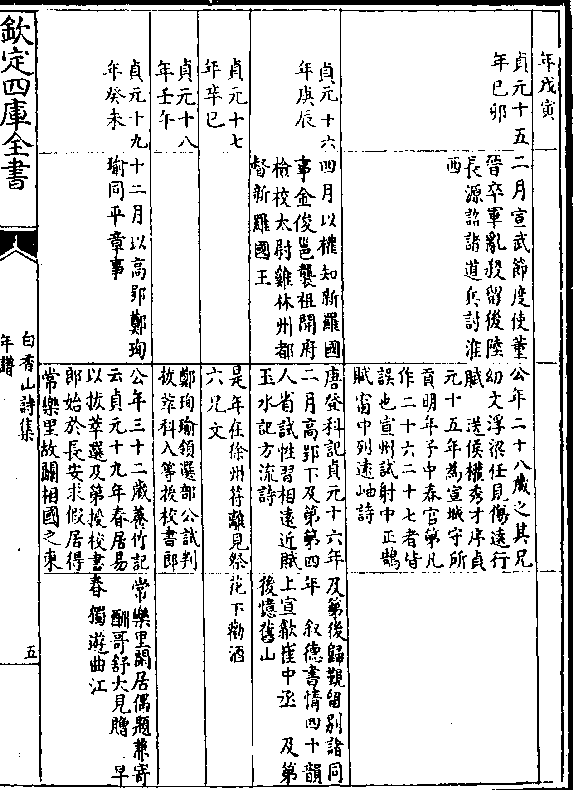 年戊寅
貞元十五
年己卯
二月宣武節度使董
晉卒軍亂殺留後陸
長源詔諸道兵討淮
西
公年二十八歲之其兄
幼文浮梁任見傷遠行
賦 送侯權秀才序貞
元十五年為宣城守所
貢明年予中春官第凡
作二十六二十七者皆
誤也宣州試射中正鵠
賦窗中列遠岫詩
貞元十六
年庚辰
四月以權知新羅國
事金俊邕襲祖開府
檢校太尉雞林州都
督新羅國王
唐登科記貞元十六年
二月高郢下及第第四
人省試性習相遠近賦
玉水記方流詩
及第後歸覲留別諸同
年 叙德書情四十韻
上宣歙崔中丞 及第
後憶舊山
貞元十七
年辛巳
是年在徐州符離見祭
六兄文
花下勸酒
貞元十八
年壬午
鄭珣瑜領選部公試判
拔萃科入等授校書郎
貞元十九
年癸未
十二月以高郢鄭珣
瑜同平章事
公年三十二歲養竹記
云貞元十九年春居易
以拔萃選及第授校書
郎始於長安求假居得
常樂里故關相國之東
常樂里閒居偶題兼寄
酬哥舒大見贈 早
春獨遊曲江
欽定四庫全書
白香山詩集
年譜
五